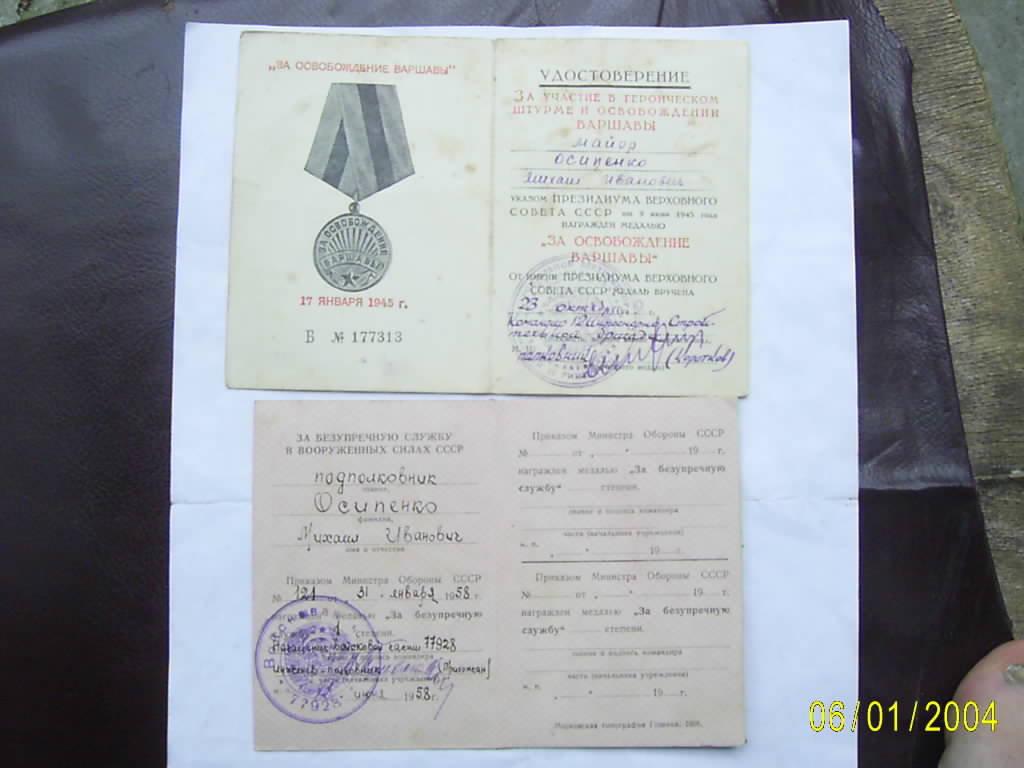 „ЗА ОСВОБОЖДЕНИЕ ВАРШАВЫ"
ЗА ОСВОБОЖДЕНИЕ
ВАРШАВЫ
17 ЯНВАРЯ 1945 г.
Б № 177313
УДОСТОВЕРЕНИЕ
ЗА УЧАСТИЕ В ГЕРОИЧЕСКОМ
ШТУРМЕ И ОСВОБОЖДЕНИИ
ВАРШАВЫ
майор
Осипенко
Михаил Иванович
УКАЗОМ ПРЕЗИДИУМА ВЕРХОВНОГО
СОВЕТА СССР от 9 июня 1945 года
НАГРАЖДЕН МЕДАЛЬЮ
„ЗА ОСВОБОЖДЕНИЕ
ВАРШАВЫ"
От имени ПРЕЗИДИУМА ВЕРХОВНОГО
СОВЕТА СССР МЕДАЛЬ ВРУЧЕНА
23 г.
Командир
полковник (Коротков)
ЗА БЕЗУПРЕЧНУЮ СЛУЖБУ
В ВООРУЖЕННЫХ СИЛАХ СССР
подполковник
звание,
Осипенко
фамилия,
Михаил Иванович
имя и отчество
Приказом Министра Обороны СССР
№ 121 от „31" января 1958 г.
медалью „За безупречную
службу" 1 степени.
Начальник войсковой части 77928
инженер-полковник
часть (начальника учреждения)
июня 1958 г.
77928
Приказом Министра Обороны СССР
№ от „ " 19 г.
награжден медалью „За безупречную
службу" степени.
звание и подпись командира
части (начальника учреждения)
м. п. „ " 19 г.
Приказом Министра Обороны СССР
№ от „ " 19 г.
награжден медалью „За безупречную
службу" степени.
звание и подпись командира
части (начальника учреждения)
м. п. „ " 19 г.
06/01/2004